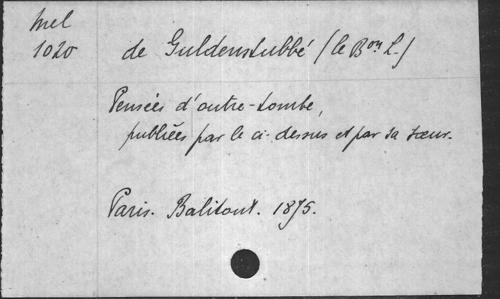 Mel
1020
de Guldenstubbé (le Bon L.)
Pensées d'outre-tombe,
publiées par le ci-dessus et par sa sœur.
Paris. Balitout. 1875.